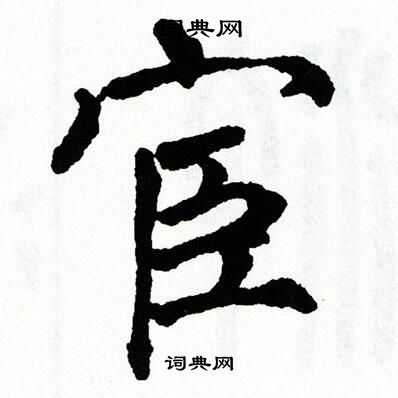 词典网
宦
词典网